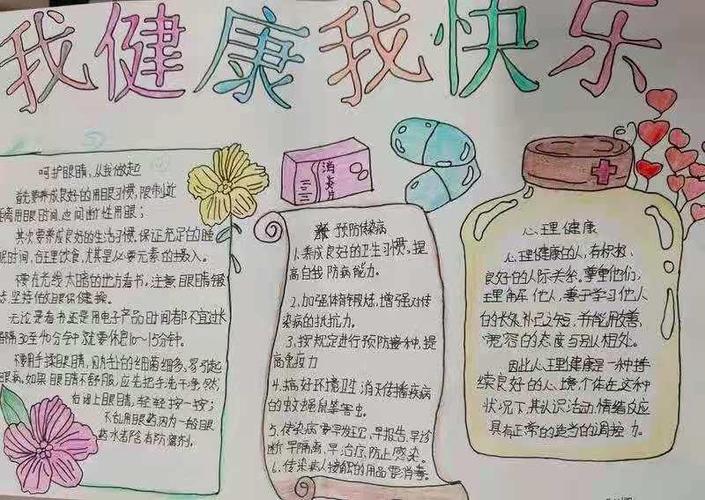 我健康我快乐
呵护眼睛,从我做起
首先要养成良好的用眼习惯,限制近
距离用眼时间,定间断性用眼;
其次要养成良好的生活习惯,保证充足的睡
眠时间,合理饮食,尤其是必要元素的摄入。
不要在光线太暗的地方看书,注意眼睛锻
坚持做眼保健操。
无论是看书还是用电子产品时间都不宜过长
隔30至40分钟就要休息10~15分钟。
不要用手揉眼睛,因为手上的细菌很多,容易引起
眼病,如果眼睛不舒服,应先把手洗干净然
右闭上眼睛,轻轻按一按;
不乱用眼药因为一般眼
药水都含有防腐剂。
消炎片
预防传染病
1.养成良好的卫生习惯,提
高自我防病能力。
2.加强体育锻炼,增强对传
染病的抵抗力。
3.按规定进行预防接种,提
高免疫力
4.搞好环境卫生 消灭传播疾病
的蚊蝇鼠蟑害虫。
5.传染病要早发现,早报告,早诊
断 早隔离,早治疗,防止感染。
6.传染病人接触的用品要消毒。
心理健康
心理健康的人,有积极、
良好的人际关系。尊重他们,
理解他人,善于学习他人
的长处补己之短,并能用友善,
宽容的态度与别人相处。
因此心理健康是一种持
续良好的心境,个体在这种
状况下,其认识活动,情绪反应
具有正常的适当的调控力。